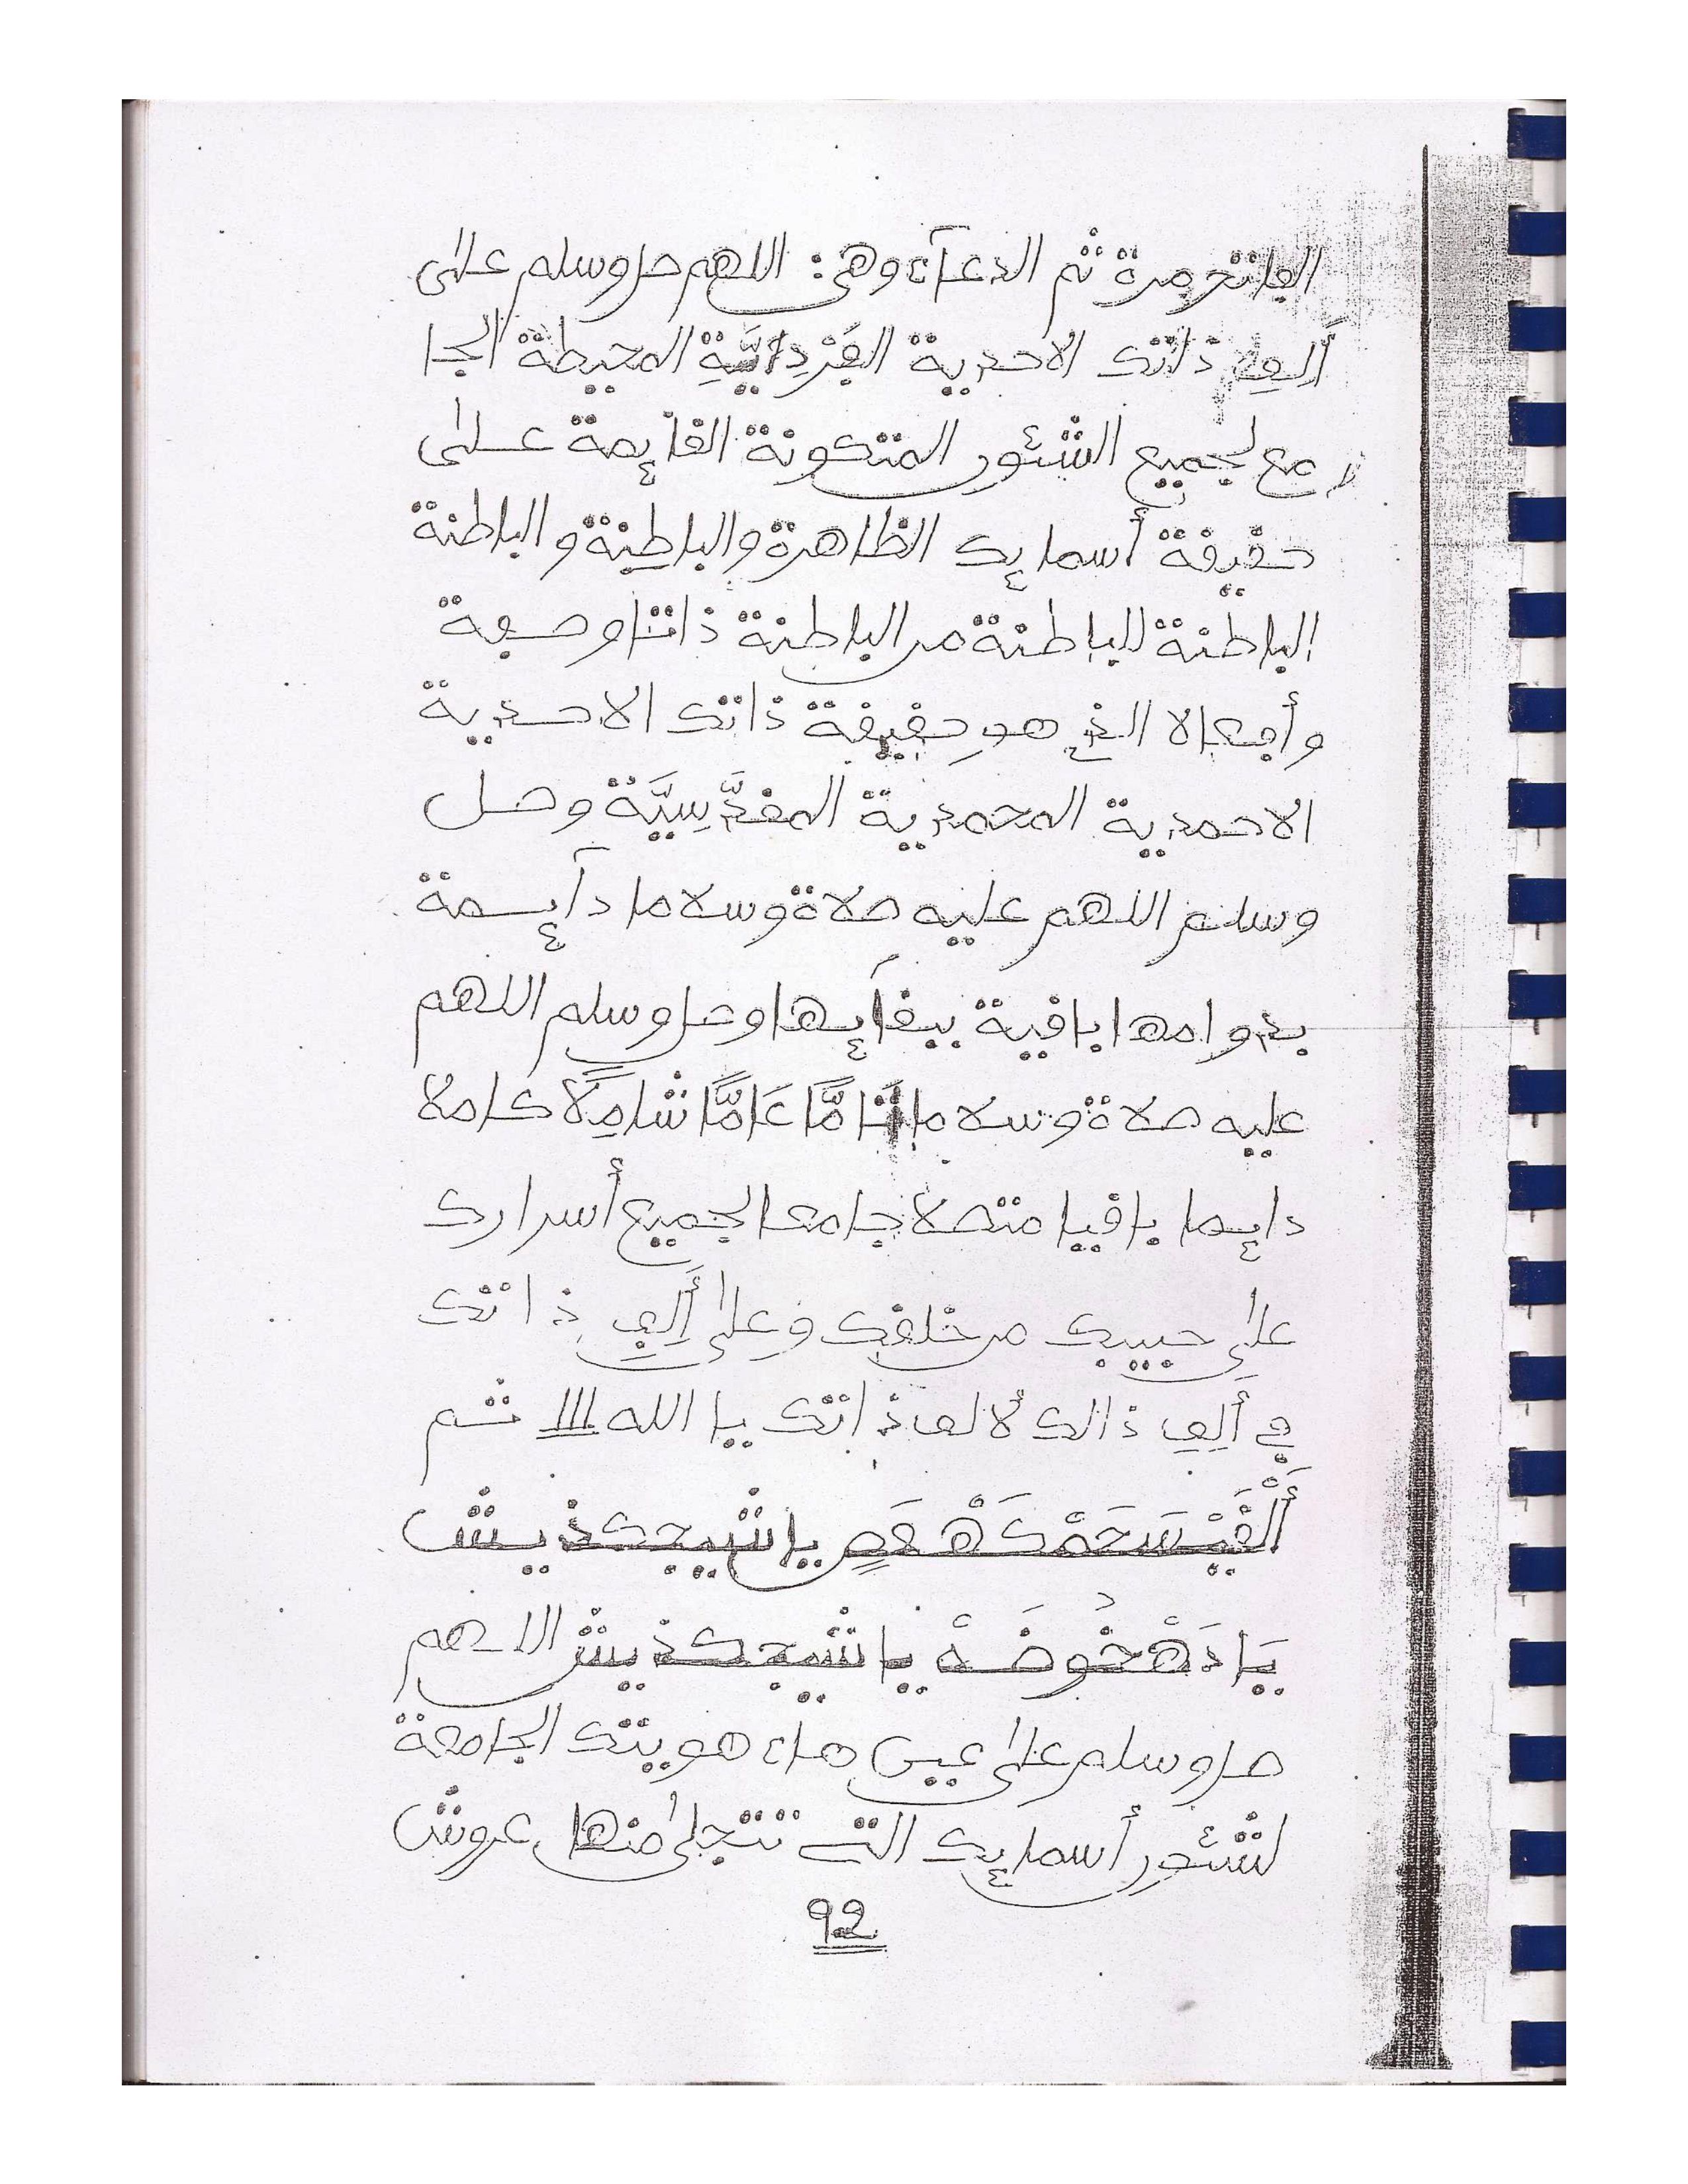 الفاتحة مرة ثم الدعآء وهى: اللهم صل وسلم على
أَلِفِ ذاتك الاحدية الفَرْدِانِيَّةِ المحيطة الجا
مع لجميع الشئون المتكونة القايمة على
حقيقة أسمايك الظاهرة والباطنة والباطنة
الباطنة للباطنة من الباطنة ذاتا وصفة
وأفعالا الذى هو حقيقة ذاتك الاحدية
الاحمدية المحمدية المقدَّسِيَّة وصل
وسلم اللهم عليه صلاة وسلاما دآيمة
بدوامها باقية ببقآيها وصل وسلم اللهم
عليه صلاة وسلاما تَامًّا عَامًّا شَامِلًا كاملا
دايما باقيا متصلا جامعا لجميع أسرارك
على حبيبك من خلقك وعلى أَلِفِ ذاتك
في أَلِفِ ذالك لألف ذاتك يا الله ااا ثم
يا شيجكذيش
يا شيجكذيش اللهم
صل وسلم على غيب هاء هويتك الجامعة
لشئون أسمايك التى تتجلى منها عروش
92